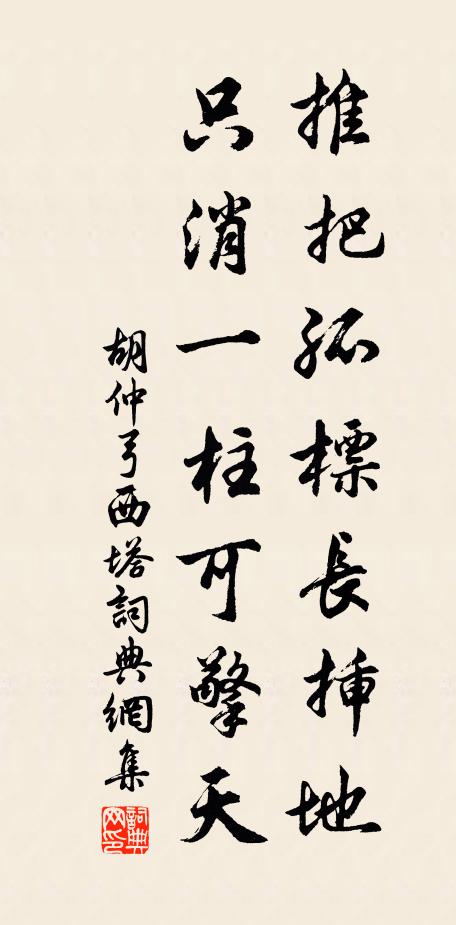 推把孤標長挿地
只消一柱可擎天
胡仲弓西塔詞典網集
詞典網印